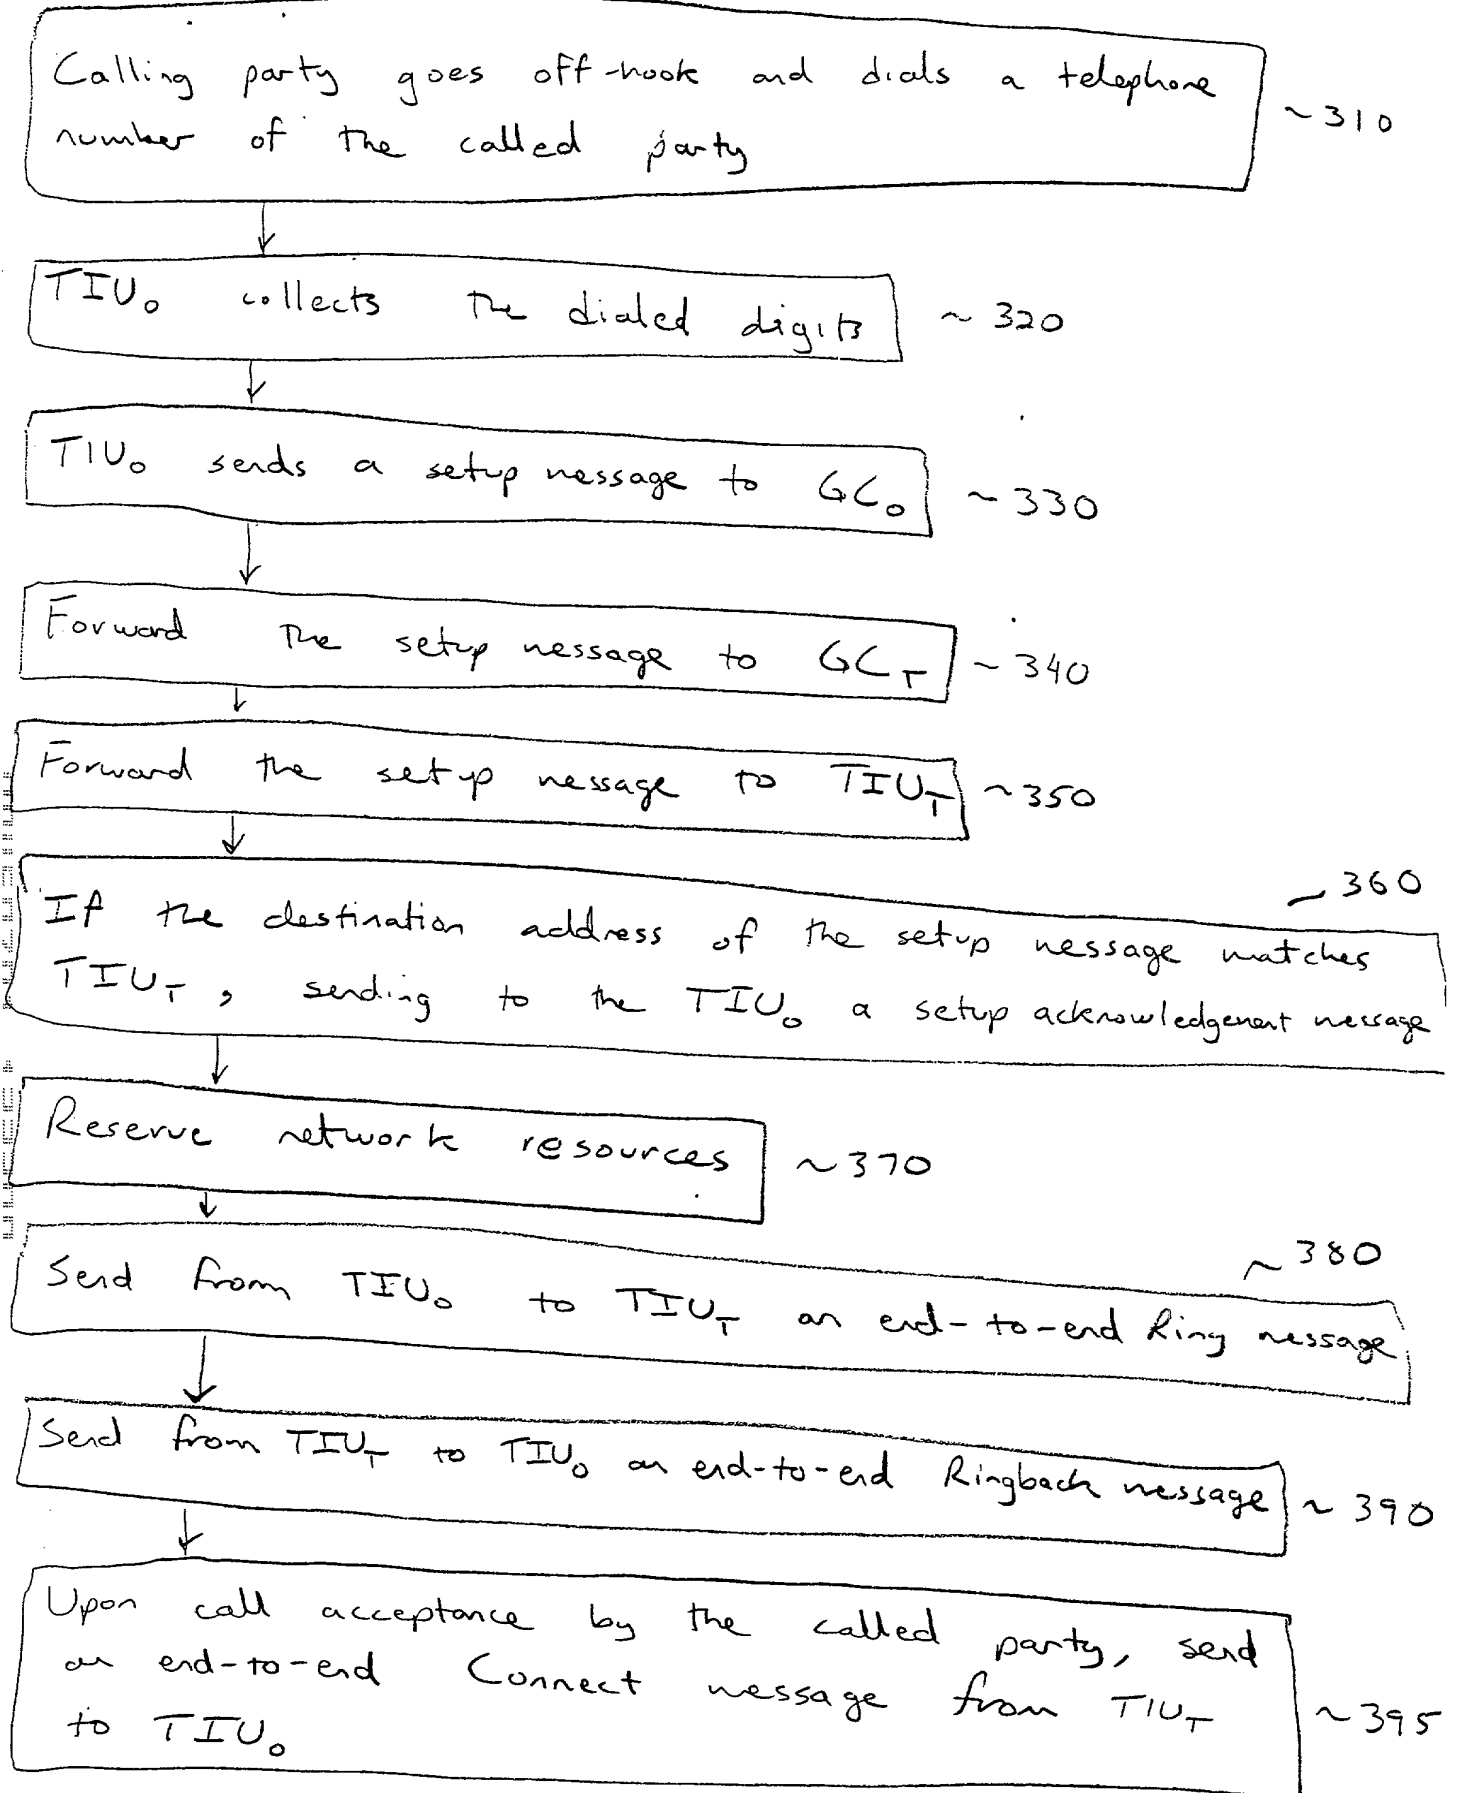 Calling party goes off-hook and dials a telephone
number of the called party
~310
TIU₀ collects the dialed digits
~320
TIU₀ sends a setup message to GC₀
~330
Forward the setup message to GC_T
~340
Forward the setup message to TIU_T
~350
~360
If the destination address of the setup message matches
TIU_T, sending to the TIU₀ a setup acknowledgement message
Reserve network resources
~370
~380
Send from TIU₀ to TIU_T an end-to-end Ring message
Send from TIU_T to TIU₀ an end-to-end Ringback message
~390
Upon call acceptance by the called party, send
an end-to-end Connect message from TIU_T
to TIU₀
~395